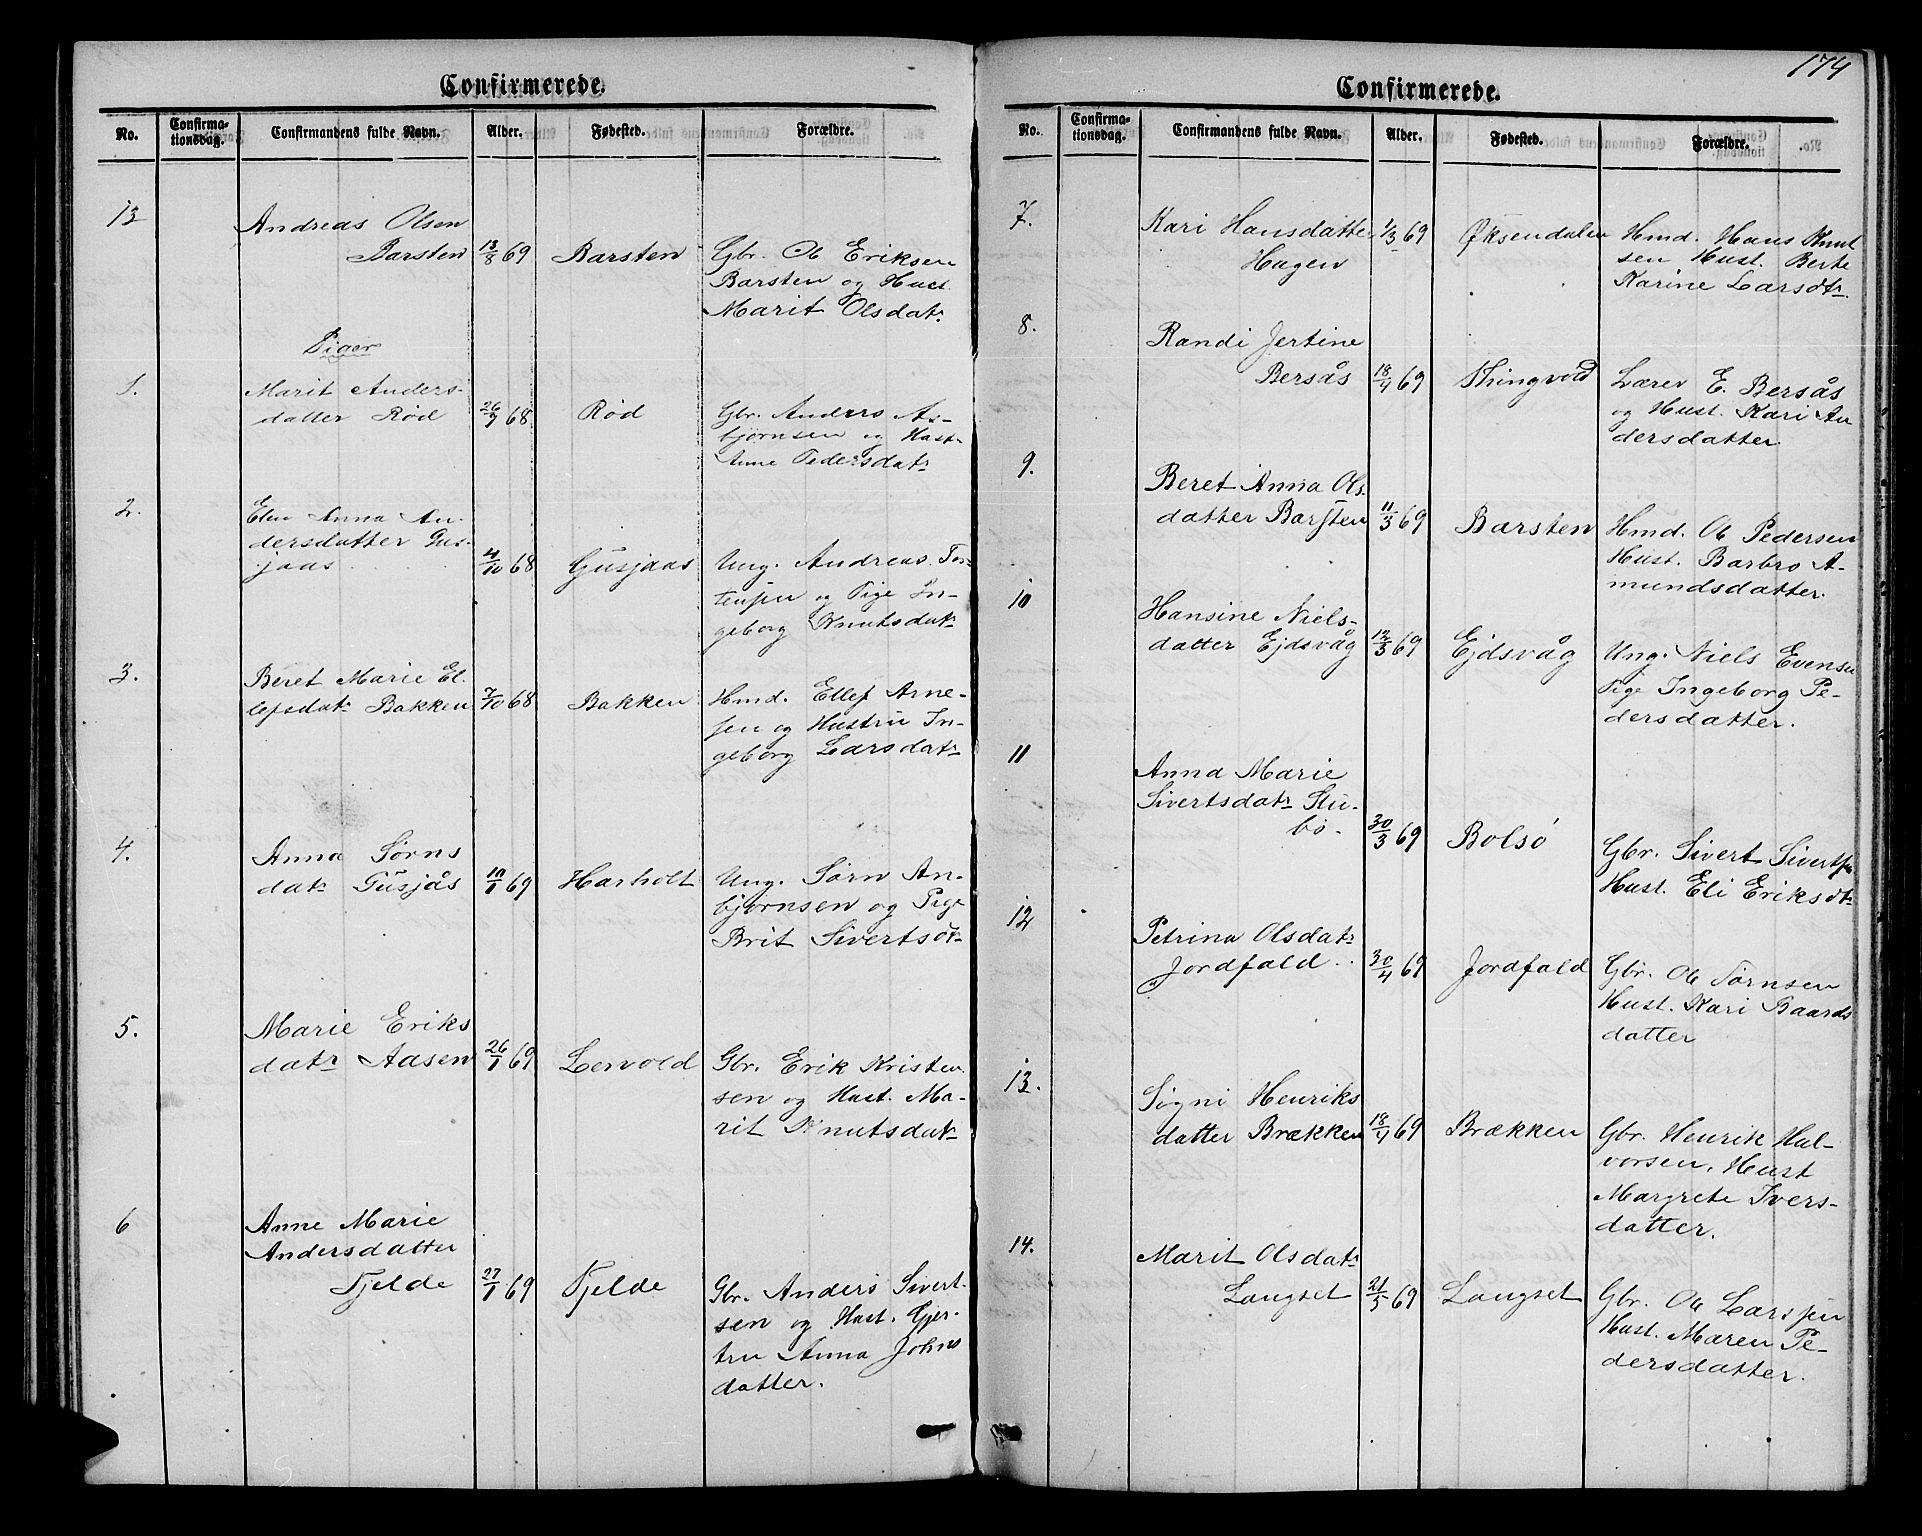 Confirmerede.
No. Confirma-
tionsdag. Confirmandens fulde Navn. Alder. Fødested. Forældre.
13
Andreas Olsen
Barsten 13/8 69 Barsten Gbr. Ole Eriksen
Barsten og Hust.
Marit Olsdatr
Piger
1. Marit Anders-
datter Rød 26/9 68 Rød Gbr. Anders As-
bjørnsen og Hust.
Anne Pedersdatr
2. Elen Anna An-
dersdatter Gus-
jaas 4/10 68 Gusjaas Ung. Andreas Tos-
tensen og Pige In-
geborg Knutsdatr
3. Beret Marie El-
lefsdatr Bakken 7/10 68 Bakken Hmd. Ellef Arne-
sen og Hustru In-
geborg Larsdatr
4. Anna Sørns
datr Gusjås 10/1 69 Harholt Ung. Sørn An-
bjørnsen og Pige
Brit Sivertsdtr
5. Marie Eriks
datr Aasen 26/1 69 Lervold Gbr. Erik Kristen-
sen og Hust. Ma-
rit Knutsdatr
6 Anne Marie
Andersdatter
Fjelde 27/1 69 Fjelde Gbr. Anders Sivert-
sen og Hust. Gjer-
tru Anna Johns
datter.
174
Confirmerede.
No. Confirma-
tionsdag. Confirmandens fulde Navn. Alder. Fødested. Forældre.
7. Kari Hansdatter 1/3 69 Øksendalen Hmd. Hans Knut
Hagen sen Hust. Berte
Karine Larsdtr.
8. Randi Jertine
Bersås 18/4 69 Thingvold Lærer E. Bersås
og Hust. Kari An
dersdatter.
9. Beret Anna Ols-
datter Barsten 11/3 69 Barsten Hmd. Ole Pedersen
Hust. Barbro A-
mundsdatter.
10 Hansine Niels-
datter Ejdsvåg 12/3 69 Ejdsvåg Ung. Niels Evensen
Pige Ingeborg Pe-
dersdatter.
11 Anna Marie
Sivertsdatr Stu-
bø. 30/3 69 Bolsø Gbr. Sivert Sivertsen
Hust. Eli Eriksdtr
12 Petrina Olsdatr
Jordfald 30/4 69 Jordfald Gbr. Ole Sørnsen
Hust. Kari Baards
datter
13. Signi Henriks
datter Brækken 18/4 69 Brækken Gbr. Henrik Hal-
vorsen, Hust
Margrete Ivers-
datter.
14. Marit Olsdatr
Langset 21/5 69 Langset Gbr. Ole Larssen
Hust. Maren Pe-
dersdatter.